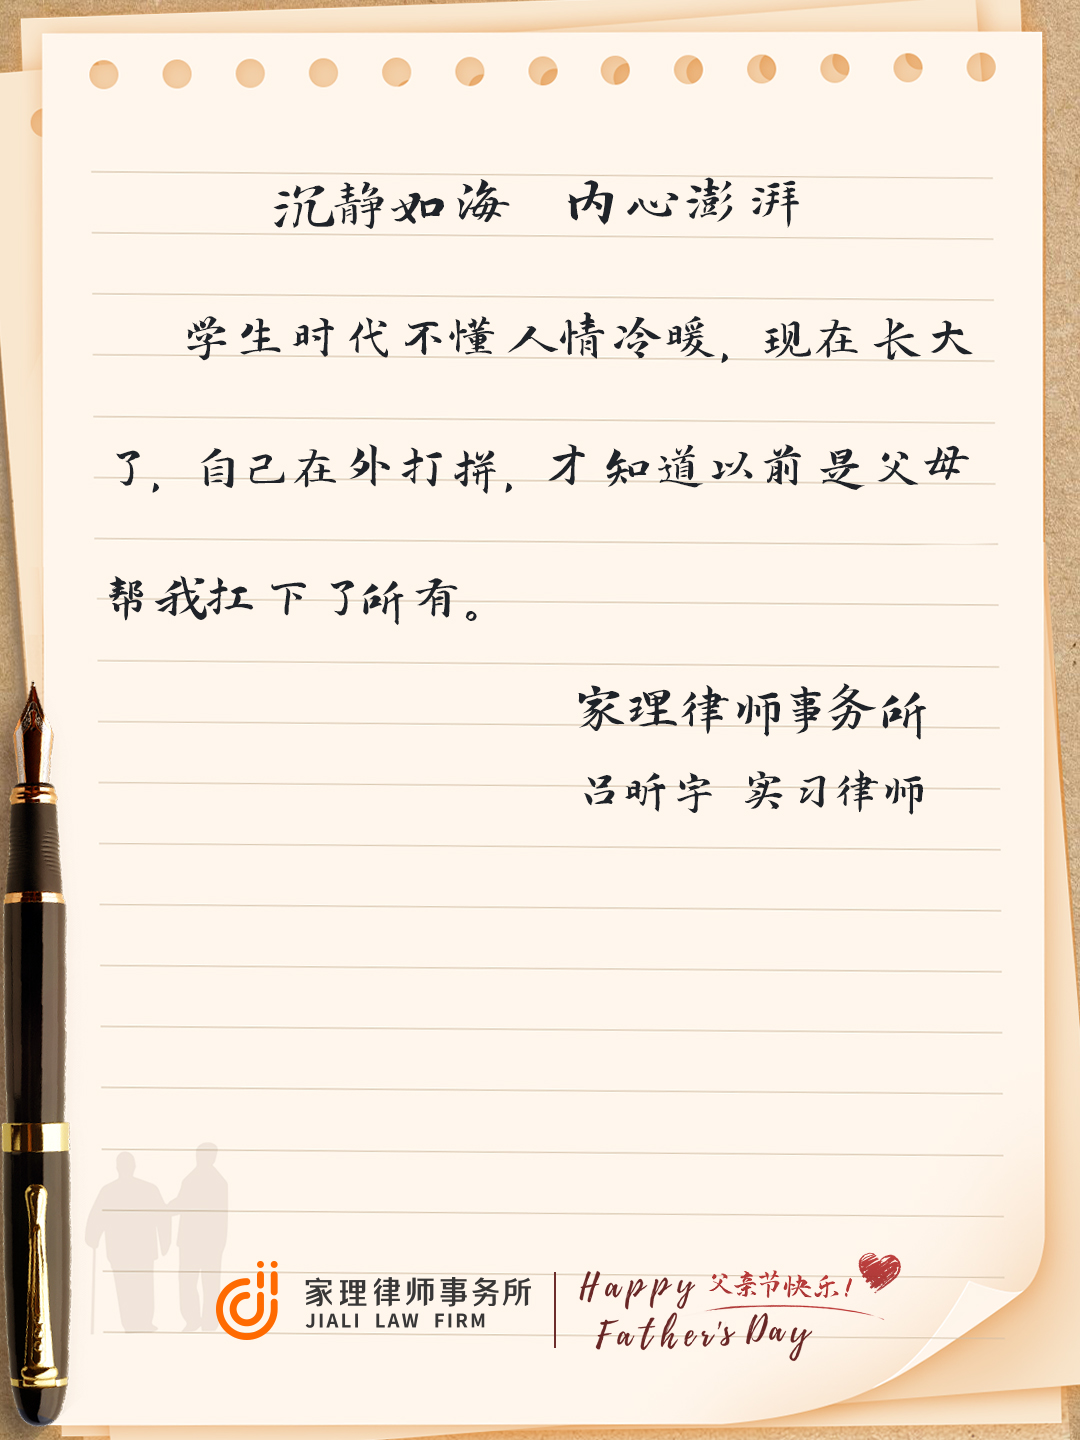 沉静如海 内心澎湃
学生时代不懂人情冷暖，现在长大
了，自己在外打拼，才知道以前是父母
帮我扛下了所有。
家理律师事务所
吕昕宇 实习律师
家理律师事务所
JIALI LAW FIRM
Happy 父亲节快乐！
Father's Day